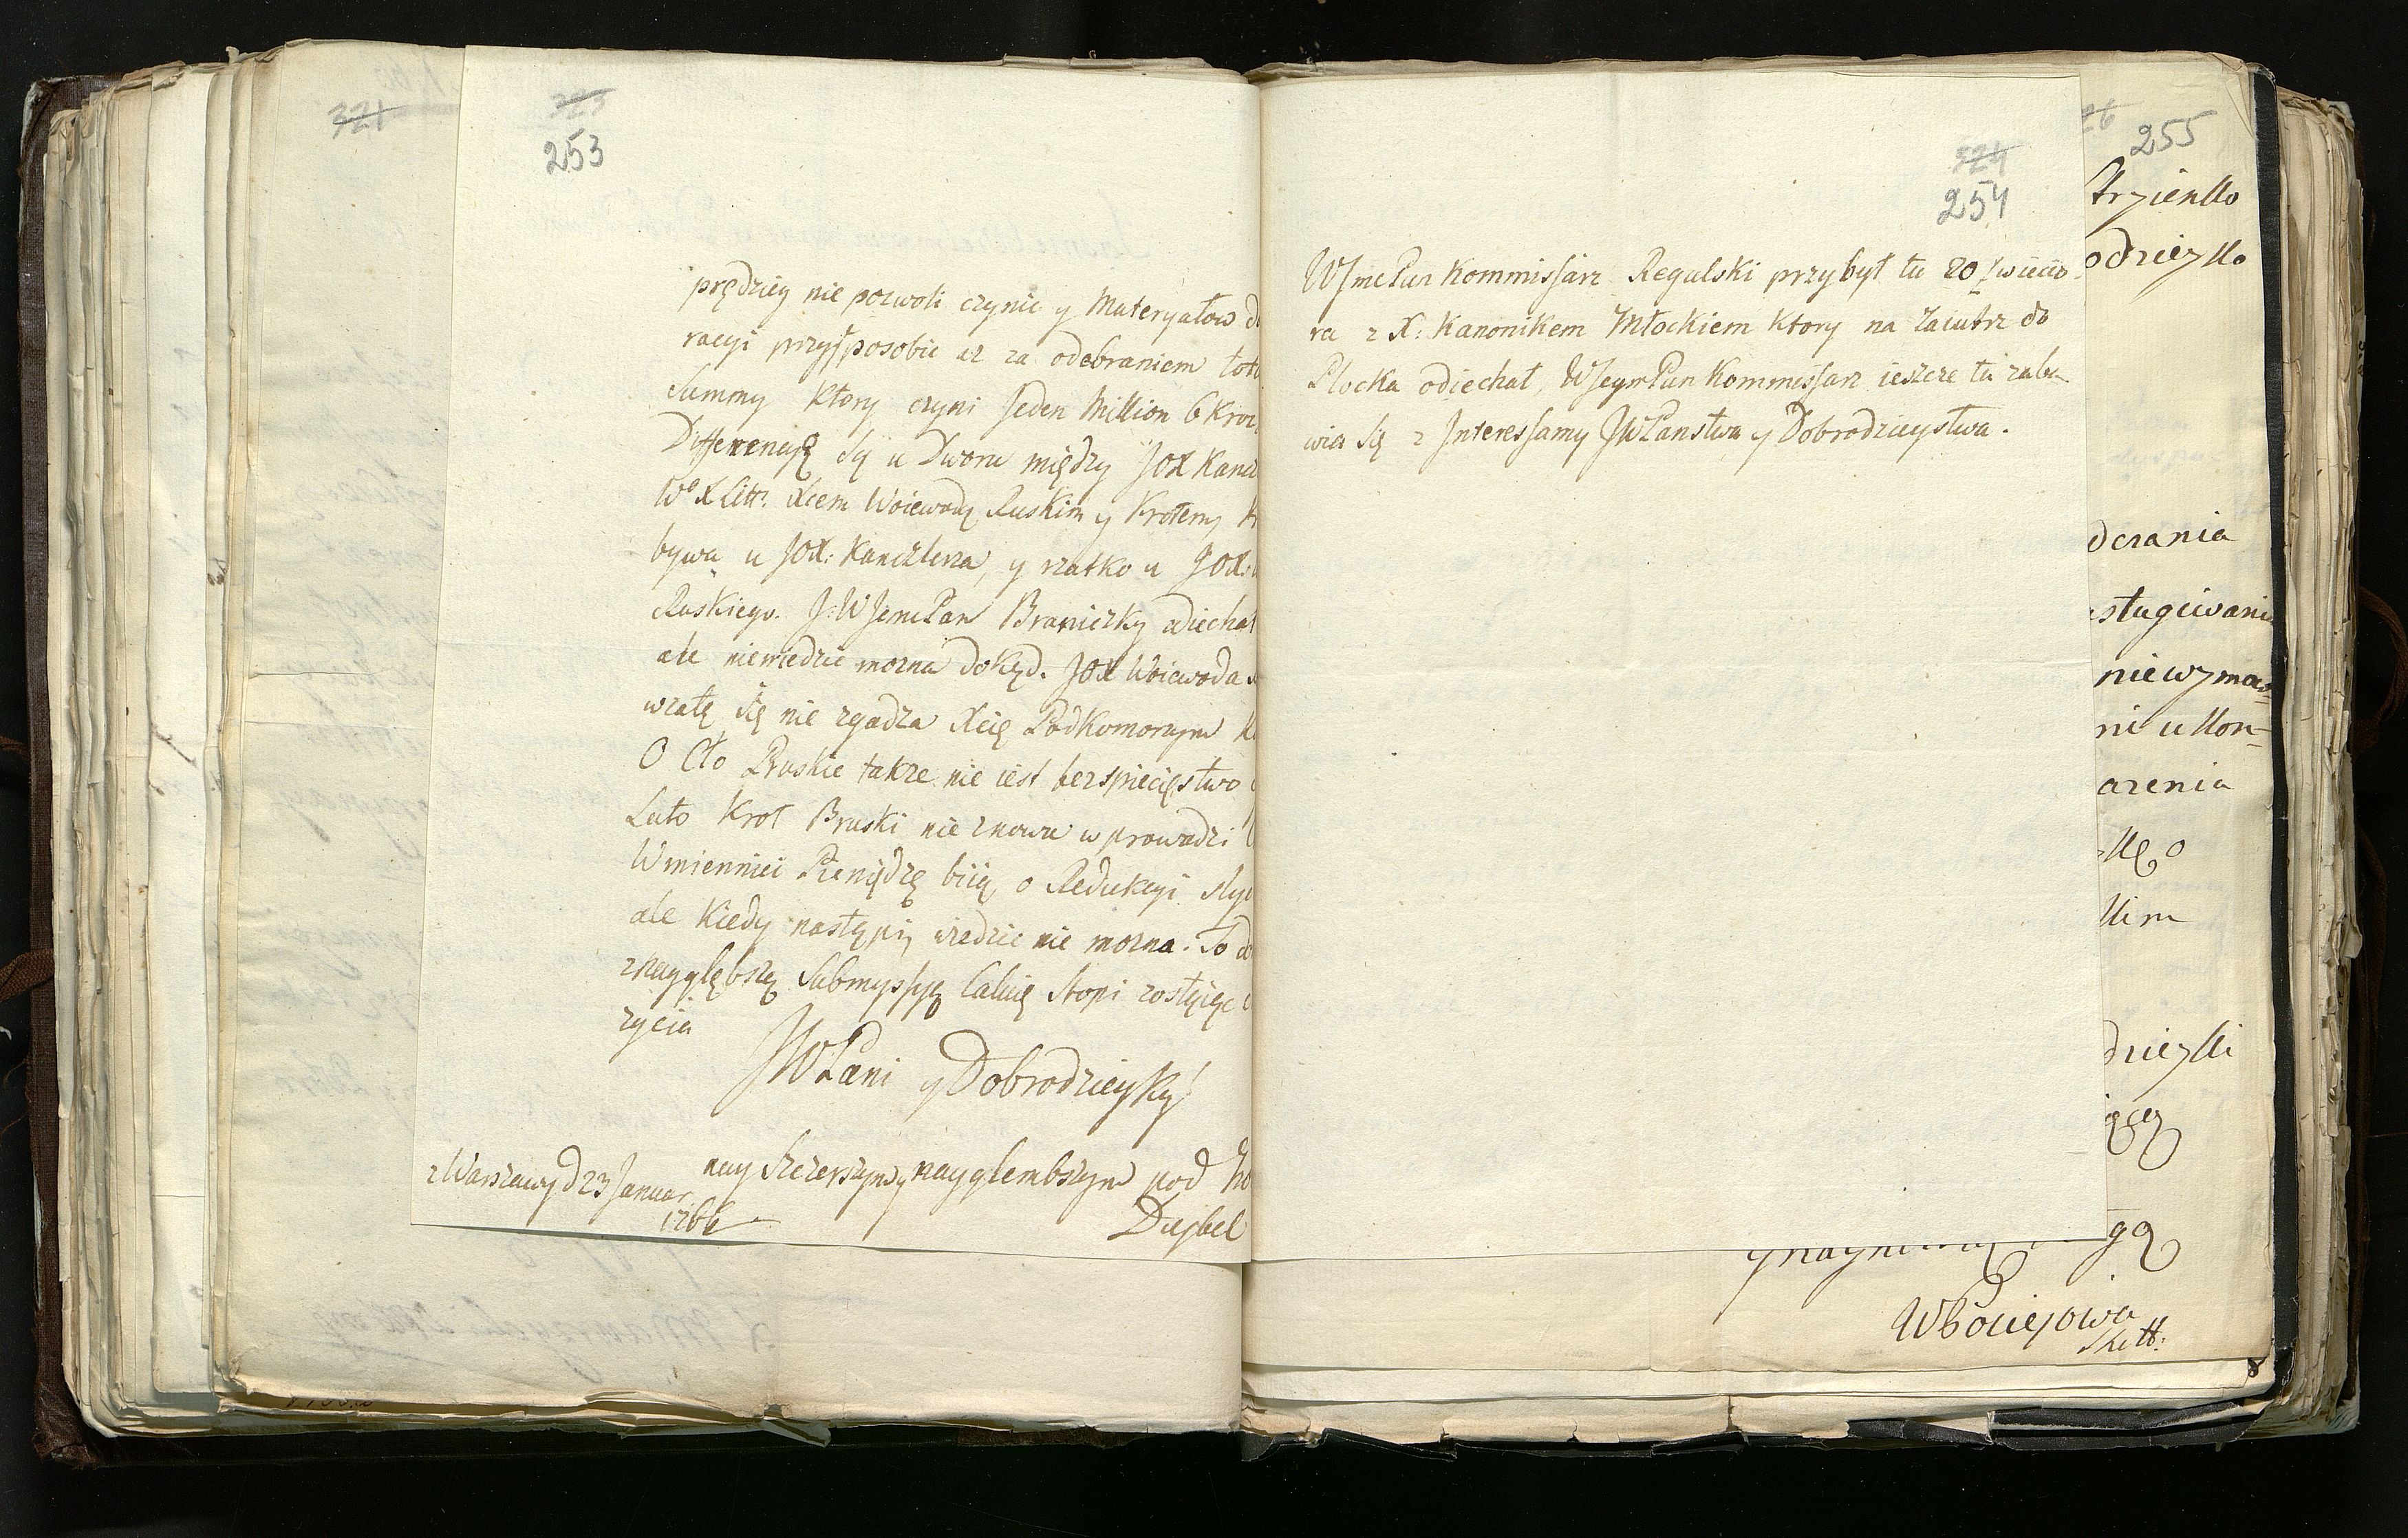 321
323
253
prędziey nie pozwoli czynic y Materyałow d
racyi przysposobic az za odebraniem tot
Summy ktory czyni Jeden Million 6 kroc
Differencyę Są u Dworu między JOX Kancl
Wo X Litt: Xcem Woiewodą Ruskim y Krolem, K
bywa u JOX: Kanclerza, y rzatko u JOX:
Ruskiego. J:W Jemc Pan Braniczky odiechał
ale niewiedzic mozna dokąd. JOX Woiewoda
wzatę Się nie zgadza Xcię Podkomorzym K
O Cło Pruskie takze nie iest bezspieczęstwo
Lato Krol Pruski nie znowu wprowadzi
W miennici Pieniądzę biią o Redukcyi slyc
ale kiedy nastąpi, wiedzic nie mozna. To d
znaygłębszą Submyssyą Caluię Stopi zostaiąc
zycia
JWPani y Dobrodzieyky
nay Szczerszym y nayglembszym pod no
z Warszawy d 23 Januar
1766
Dujbel
324
254
WJmc Pan Kommissarz Regulski przybył tu 20 J wieczo
ra z X: Kanonikem Młockiem ktory na zaiutrz do
Plocka odiechał, WJeym Pan Kommissarz ieszcze tu zaba
wia Się z Interessamy JWPanstwa y Dobrodzieystwa.
26
255
odzieyko
dczania
sługiwania
niewymow=
ni ukon=
arzenia
kim
dzieyki
gą
WPociejowa